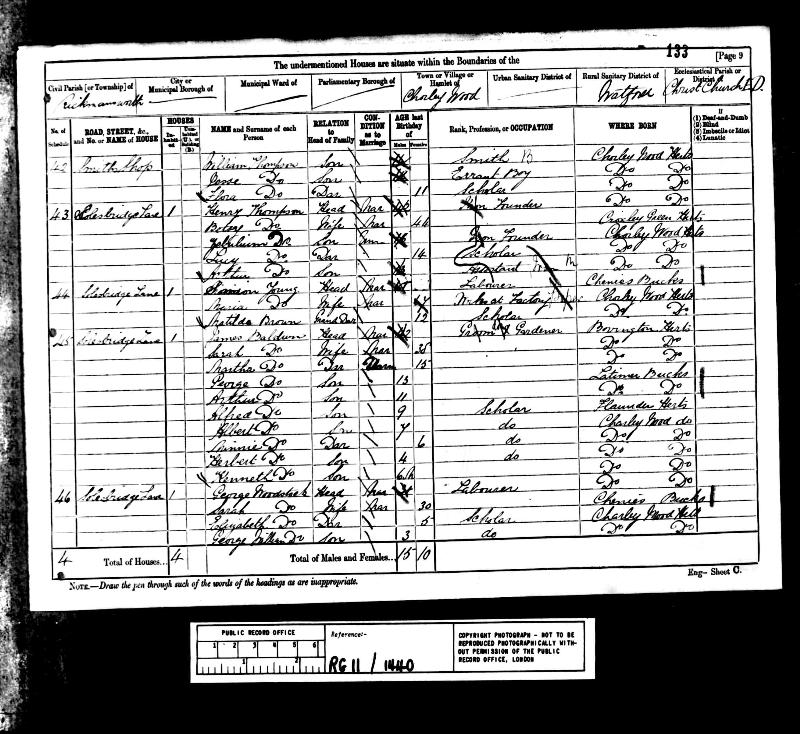 133
The undermentioned Houses are situate within the Boundaries of the [Page 9
Civil Parish [or Township] of Rickmansworth
City or Municipal Borough of
Municipal Ward of
Parliamentary Borough of
Town or Village or Hamlet of Chorley Wood
Urban Sanitary District of
Rural Sanitary District of Watford
Ecclesiastical Parish or District of Christ Church E.D.
No. of Schedule
ROAD, STREET, &c., and No. or NAME of HOUSE
HOUSES
Inhabited
Uninhabited (U.), or Building (B.)
NAME and Surname of each Person
RELATION to Head of Family
CONDITION as to Marriage
AGE last Birthday of
Males Females
Rank, Profession, or OCCUPATION
WHERE BORN
If
(1) Deaf-and-Dumb
(2) Blind
(3) Imbecile or Idiot
(4) Lunatic
42 Smiths Shop William Thompson Son Smith B Chorley Wood Herts
Jesse Do Son Errant Boy Do Do
Flora Do Dar 11 Scholar Do Do
43 Solesbridge Lane 1 Henry Thompson Head Mar Iron Founder Do Do
Betsy Do Wife Mar 44 Croxley Green Herts
Do Son Iron Founder Chorley Wood Herts
Lucy Do Dar 14 Scholar Do Do
Arthur Do Son Do Do
44 Solesbridge Lane 1 Young Head Mar Labourer Chenies Bucks
Maria Do Wife Mar Works at Factory Chorley Wood Herts
Matilda Brown Grand Dar 12 Scholar Do Do
45 Solesbridge Lane 1 James Baldwin Head Mar 42 Groom & Gardener Bovington Herts
Sarah Do Wife Mar 38 Do Do
Martha Do Dar 15 Do Do
George Do Son 13 Latimer Bucks
Arthur Do Son 11 Do Do
Alfred Do Son 9 Scholar Flaunden Herts
Albert Do Son 7 do Charley Wood do
Minnie Do Dar 6 do Do Do
Herbert Do Son 4 do Do Do
Kenneth Do Son 6 m Do Do
46 Solesbridge Lane 1 George Woodstock Head Mar Labourer Chenies Bucks
Sarah Do Wife Mar 30 Charley Wood Herts
Elizabeth Do Dar 5 Scholar Do Do
George William Do Son 3 do Do Do
4 Total of Houses... 4 Total of Males and Females... 15 10
NOTE.—Draw the pen through such of the words of the headings as are inappropriate.
Eng— Sheet C.
PUBLIC RECORD OFFICE
1 2 3 4 5 6
1 2
Reference:-
RG 11 / 1440
COPYRIGHT PHOTOGRAPH - NOT TO BE
REPRODUCED PHOTOGRAPHICALLY WITH-
OUT PERMISSION OF THE PUBLIC
RECORD OFFICE, LONDON